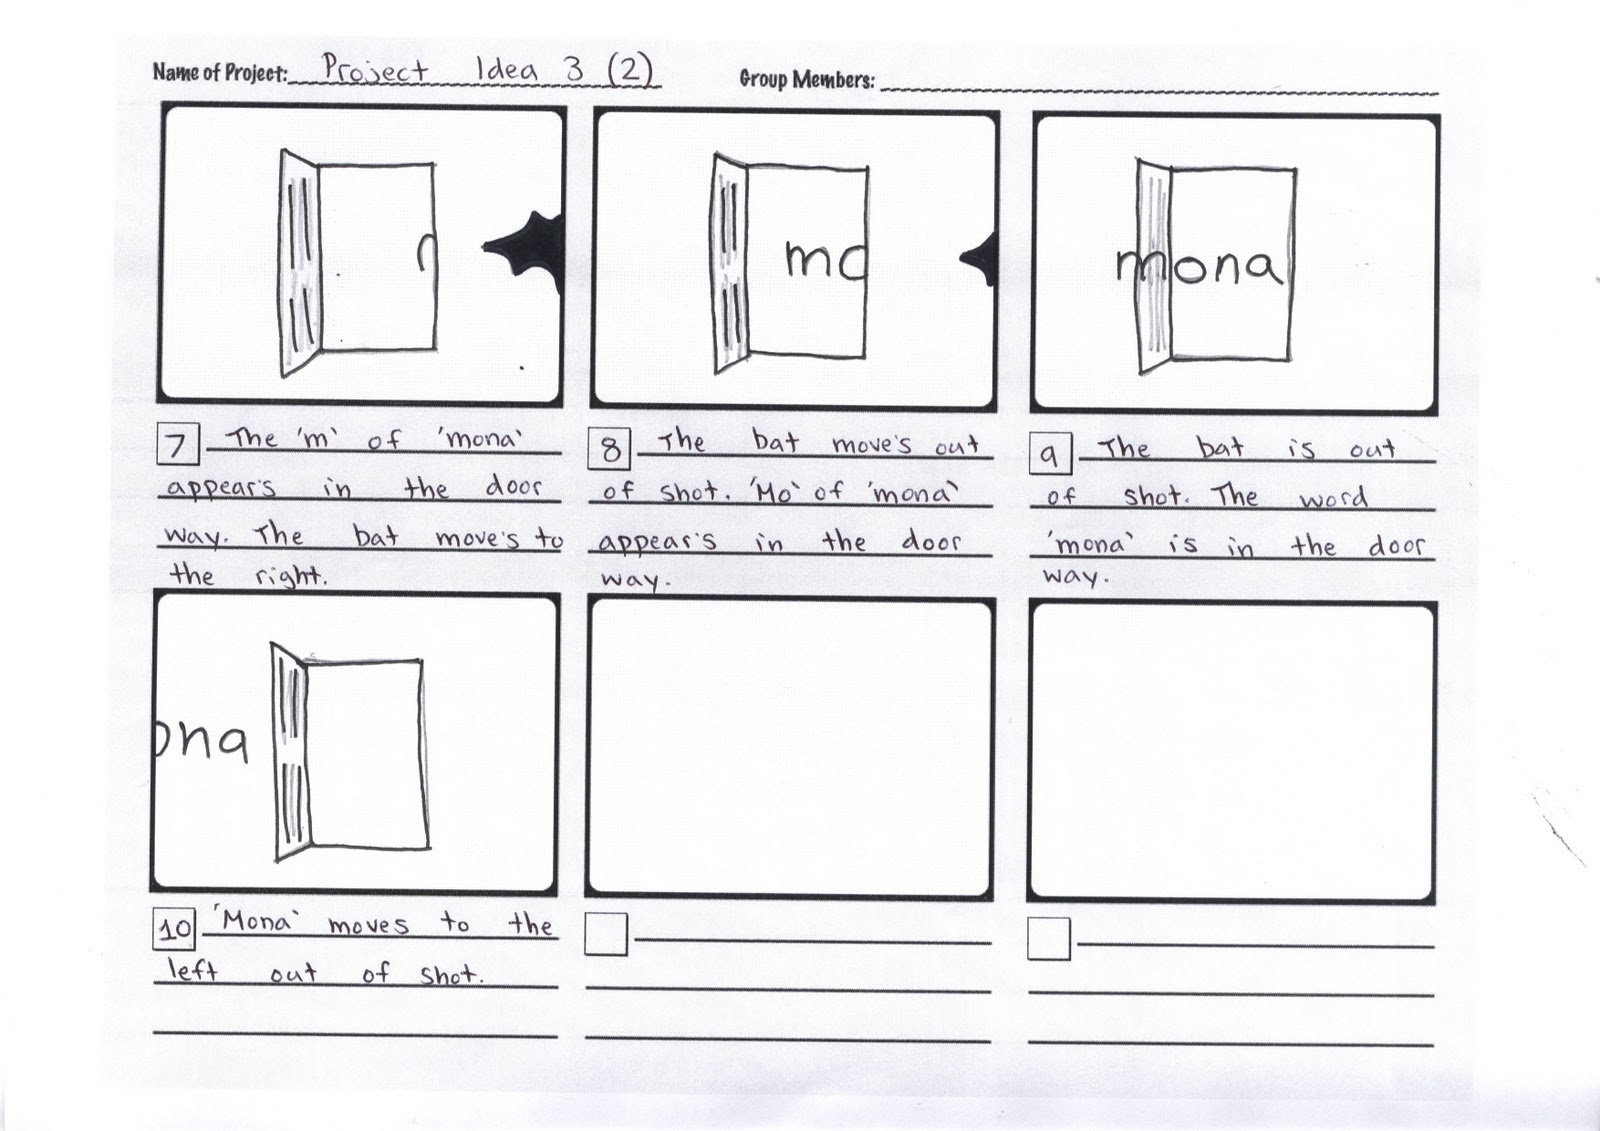 Name of Project: Project Idea 3 (2)
Group Members:
n
mo
mona
7 The 'm' of 'mona'
appear's in the door
way. The bat move's to
the right.
8 The bat move's out
of shot. 'Mo' of 'mona'
appear's in the door
way.
9 The bat is out
of shot. The word
'mona' is in the door
way.
ona
10 'Mona' moves to the
left out of shot.